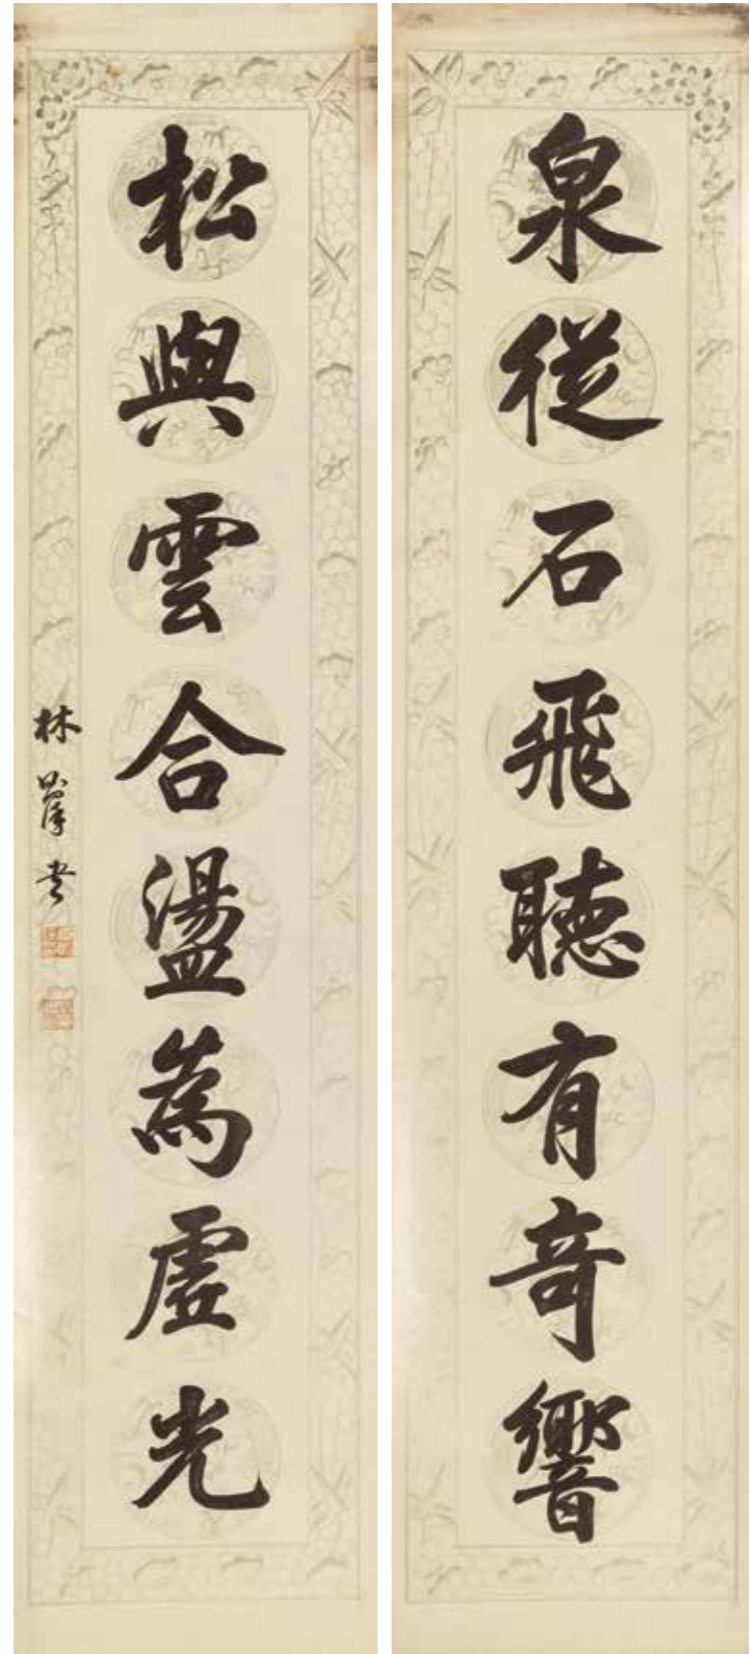 泉從石飛聽有奇響
松與雲合盪為虛光
林